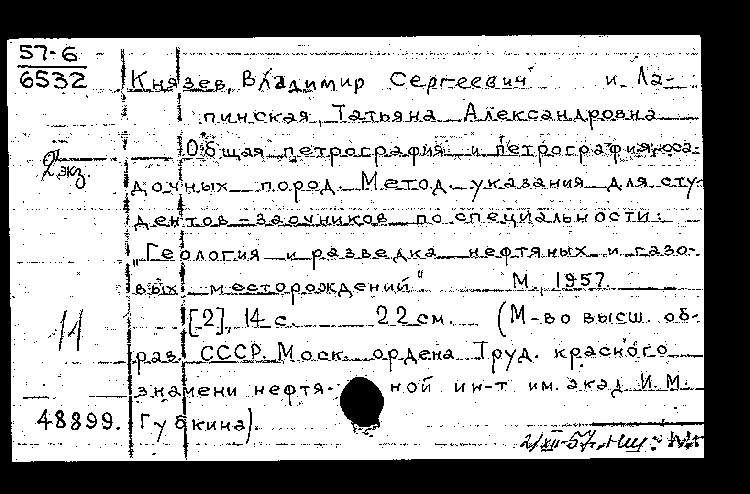 57-6
6532
Князев, Владимир Сергеевич и Ла-
пинская, Татьяна Александровна
Общая петрография и петрография оса-
2 экз.
дочных пород. Метод. указания для сту-
дентов-заочников по специальности:
„Геология и разведка нефтяных и газо-
вых месторождений" М., 1957.
[2], 14 с. 22 см. (М-во высш. об-
14
раз. СССР. Моск. ордена Труд. красного
знамени нефтя- ной ин-т им. акад. И.М.
48899. Губкина).
2/XII-57.